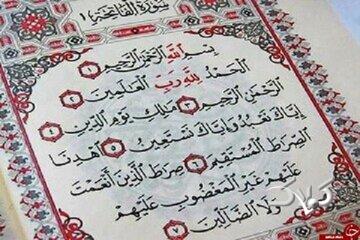 سورة الفاتحة
بِسْمِ اللَّهِ الرَّحْمَٰنِ الرَّحِيمِ ١
الْحَمْدُ لِلَّهِ رَبِّ الْعَالَمِينَ ٢
الرَّحْمَٰنِ الرَّحِيمِ ٣ مَالِكِ يَوْمِ الدِّينِ ٤
إِيَّاكَ نَعْبُدُ وَإِيَّاكَ نَسْتَعِينُ ٥ اهْدِنَا
الصِّرَاطَ الْمُسْتَقِيمَ ٦ صِرَاطَ الَّذِينَ أَنْعَمْتَ
عَلَيْهِمْ غَيْرِ الْمَغْضُوبِ عَلَيْهِمْ
وَلَا الضَّالِّينَ ٧